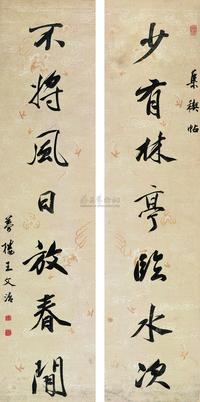 集禊帖
少有林亭臨水次
不將風日放春閒
夢樓王文治